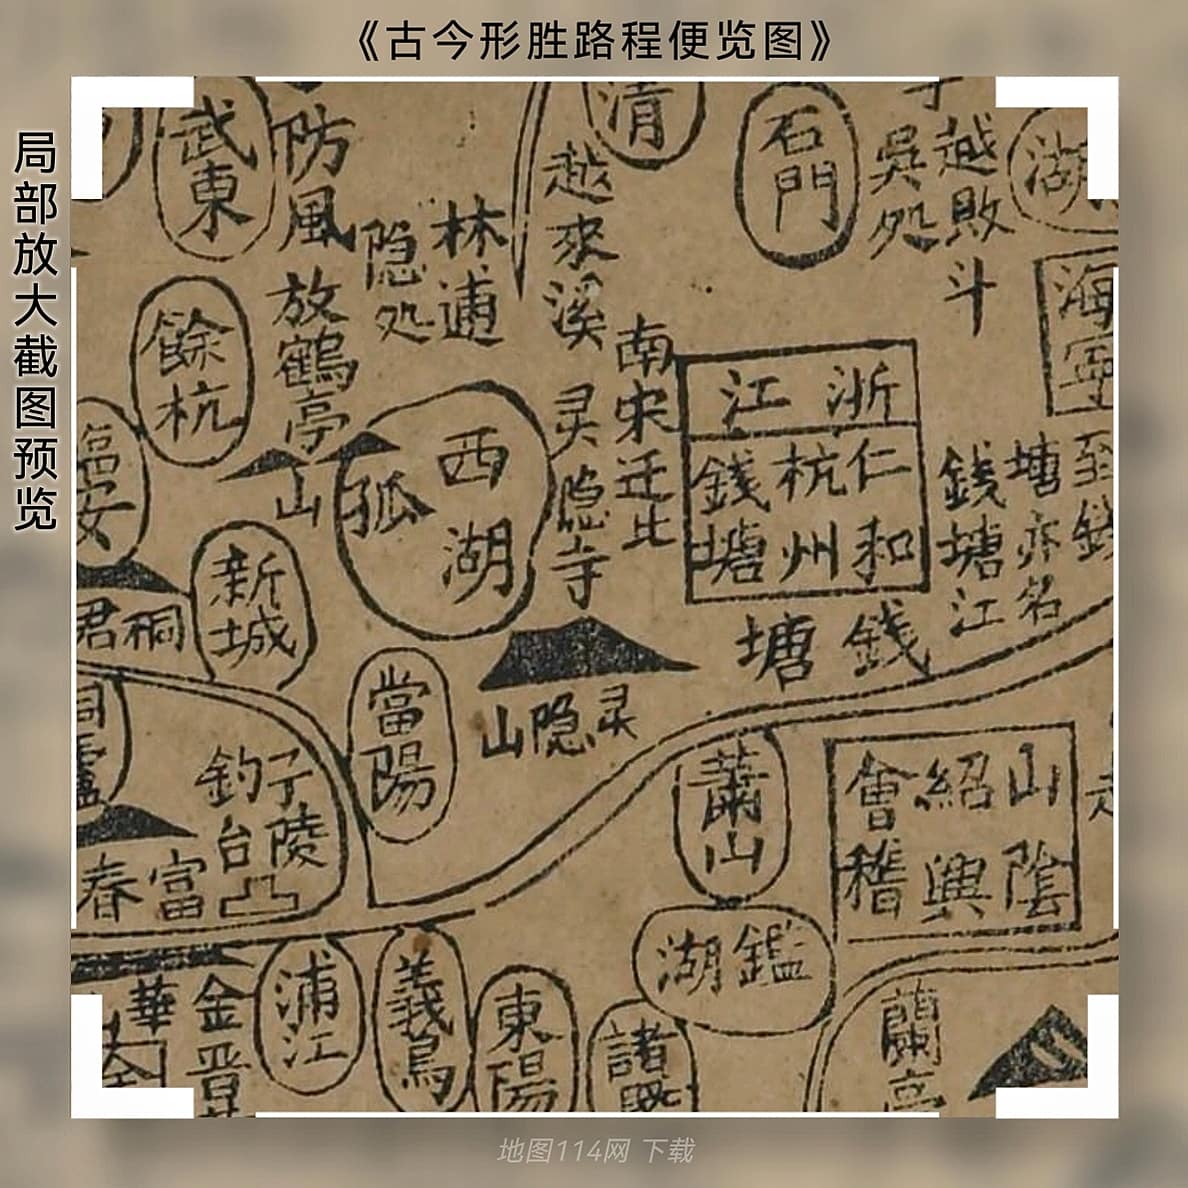 《古今形胜路程便览图》
局部放大截图预览
武東
防風
清
石門
越敗
吳処
斗
湖
越來溪
林逋
隐処
放鶴亭
餘杭
海寧
南宋迁此
灵隐寺
浙江
仁和
杭州
錢塘
西湖
孤山
至錢
塘亦名
錢塘江
臨安
新城
桐君
錢塘
灵隐山
當陽
子陵
釣台
富春
桐廬
蕭山
山陰
紹興
會稽
鑑湖
金華
浦江
義烏
東陽
諸暨
蘭亭
地图114网 下载